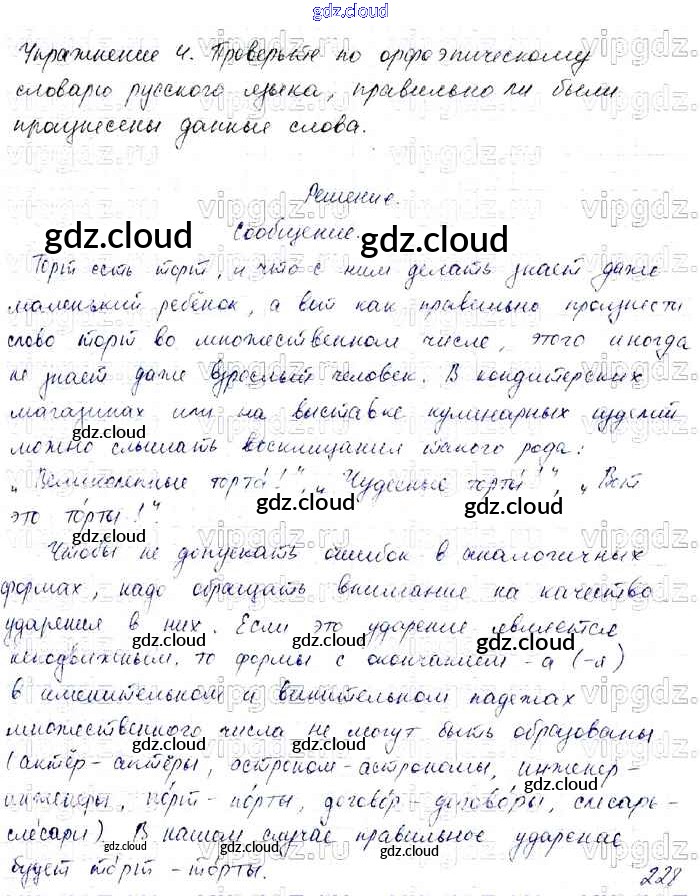 gdz.cloud
Упражнение 4. Проверьте по орфоэпическому
словарю русского языка, правильно ли были
произнесены данные слова.
Решение.
Сообщение.
Торт есть торт, и что с ним делать знает даже
маленький ребёнок, а вот как правильно произнести
слово торт во множественном числе, этого иногда
не знает даже взрослый человек. В кондитерских
магазинах или на выставке кулинарных изделий
можно слышать восклицания такого рода:
„Великолепные торта́!", „Чудесные торты́!", „Вот
это то́рты!".
Чтобы не допускать ошибок в аналогичных
формах, надо обращать внимание на качество
ударения в них. Если это ударение является
неподвижным, то формы с окончанием -а (-я)
в именительном и винительном падежах
множественного числа не могут быть образованы
(актёр - актёры, астроном - астрономы, инженер -
инженеры, по́рт - по́рты, догово́р - догово́ры, слесарь -
сле́сари). В нашем случае правильное ударение
будет то́рт - то́рты.
228